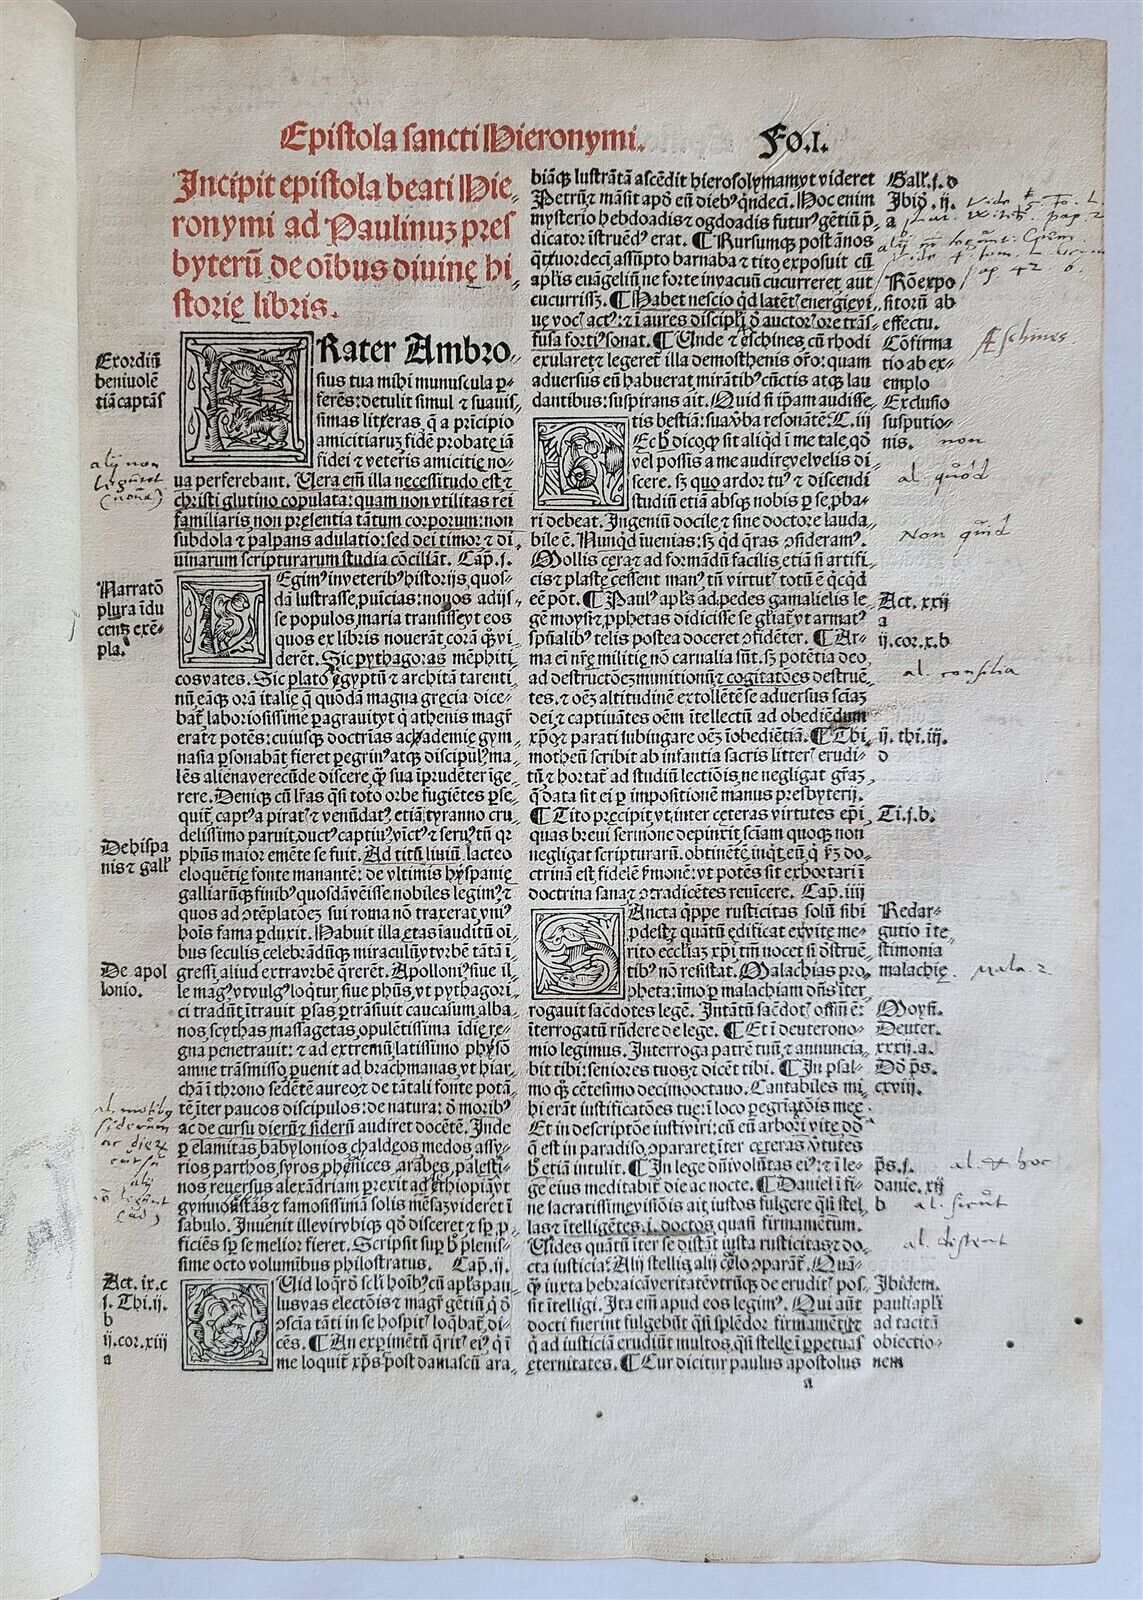 Epistola sancti Hieronymi. Fo.I.
Incipit epistola beati Hie,
ronymi ad Paulinuz pres
byterũ de oĩbus diuinę hi
storię libris.
FRater Ambro,
sius tua mihi munuscula ꝑ-
ferẽs: detulit simul ⁊ suauis,
simas litteras, q̃ a prīcipio
amicitiaruʒ fidẽ probatę iã
fidei ⁊ veteris amicitię no-
ua perferebant. Uera em̃ illa necessitudo est ⁊
christi glutino copulata: quam non vtilitas rei
familiaris, non pręsentia tãtum corporum: non
subdola ⁊ palpans adulatio: sed dei timor ⁊ di,
uinarum scripturarum studia cõciliãt. Cap. j.
LEgimꝰ in veteribꝰ historijs, quos-
dã lustrasse, puĩcias: nouos adijs,
se populos, maria transisse, vt eos
quos ex libris nouerãt, corã q̃ vi,
derẽt. Sic pythagoras mẽphiti
cos vates. Sic plato ęgyptũ ⁊ architã tarenti,
nũ, eãqꝫ orã italię, q̃ quõdã magna gręcia dice-
bat̃, laboriosissime ꝑagrauit, vt q̃ athenis magr̃
erat ⁊ potẽs: cuiusqꝫ doctrias achademię gym,
nasia ꝑsonabãt, fieret peregrinꝰ atqꝫ discipulꝰ, ma,
lẽs aliena verecũde discere, q̃ sua ĩprudẽter ĩge,
rere. Deniqꝫ cũ lr̃as q̃si toto orbe fugiẽtes ꝑse,
quit̃, captꝰ a pirat̃ ⁊ venũdatꝰ, etiã tyranno cru,
delissimo paruit, ductꝰ captiuꝰ, vĩctꝰ ⁊ seruꝰ, tñ qr
ph̃us maior emẽte se fuit. Ad titũ liuiũ, lacteo
eloquẽtię fonte manantẽ: de vltimis hyspanię
galliarũqꝫ finibꝰ quosdã vẽisse nobiles legimꝰ, ⁊
quos ad ↄtẽplatõez sui roma nõ traxerat, vniꝰ
hoĩs fama ꝑduxit. Habuit illa ętas ĩauditũ oĩ,
bus seculis celebrãdũqꝫ miraculũ, vt vrbẽ tãtã ĩ,
gressi, aliud extra vrbẽ q̃rerẽt. Apolloniꝰ siue il,
le magꝰ, vt vulgꝰ loq̃tur, siue ph̃us, vt pythagori,
ci tradũt, ĩtrauit ꝑsas, ꝑtrãsiuit caucasum, alba,
nos, scythas, massagetas, opulẽtissima ĩdię re,
gna penetrauit: ⁊ ad extremũ, latissimo physõ
amne trãsmisso, ꝑuenit ad brachmanas, vt hiar,
chã ĩ throno sedẽtẽ aureo, ⁊ de tãtali fonte potã,
tẽ, ĩter paucos discipulos: de natura: d̃ moribꝰ
ac de cursu dierũ ⁊ siderũ audiret docẽtẽ. Inde
ꝑ elamitas, babylonios, chaldęos, medos, assy,
rios, parthos, syros, phęnices, arabes, palęsti,
nos, reuersus alexãdriam, ꝑrexit ad ęthiopiã, vt
gymnosistas ⁊ famosissimã solis mẽsaz videret ĩ
sabulo. Inuenit ille vir vbiqꝫ qd̃ disceret ⁊ sp̃ ꝓ,
ficiẽs, sp̃ se melior fieret. Scripsit sup̃ h̃ plenis,
sime octo volumibus philostratus. Cap. ij.
QUid loq̃r d̃ sęcli hoĩbꝰ, cũ apl̃s pau,
lus vas electõis ⁊ magr̃ gẽtiũ, q̃ d̃
ↄscĩa tãti in se hospitꝰ loq̃bat̃, di,
cẽs. ¶An exꝑimẽtũ q̃rit̃ eiꝰ q̃ ĩ
me loquit̃ xp̃s, post damascũ ara,
biãqꝫ lustrãtã, ascẽdit hierosolymam, vt videret
Petrũ, ⁊ mãsit apd̃ eũ diebꝰ q̃ndeci. Hoc enim
mysterio hebdoadis ⁊ ogdoadis futurꝰ gẽtiũ p̃,
dicator ĩstruẽdꝰ erat. ¶Rursumqꝫ post ãnos
q̃ttuordecĩ, assũpto barnaba ⁊ tito, exposuit cũ
apl̃is euãgeliũ, ne forte in vacuũ cucurreret, aut
cucurriss̃. ¶Habet nescio qd̃ latẽt̃ energięvi,
uę vocꝰ actꝰ: ⁊ ĩ aures discipli d̃ auctorꝰ ore trãs,
fusa fortiꝰ sonat. ¶Unde ⁊ ęschines, cũ rhodi
exularet, ⁊ legeret̃ illa demosthenis or̃o: quam
aduersus eũ habuerat, mirãtibꝰ cũctis atqꝫ lau
dantibus: suspirans ait. Quid si ipam audisse,
tis bestiã: sua vba resonãtẽ: C. iij
HEc h̃ dico, q̃ sit aliqd̃ ĩ me tale, qd̃
vel possis a me audire, vel velis di,
scere. sꝫ quo ardor tuꝰ ⁊ discendi
studiũ etiã absqꝫ nobis ꝑ se ꝓba,
ri debeat. Ingeniũ docile, ⁊ sine doctore lauda,
bile ẽ. Nunqd̃ ĩuenias: sꝫ qd̃ q̃ras ↄsideramꝰ.
Mollis cęra, ⁊ ad formãdũ facilis, etiã si artifi,
cis ⁊ plastę cessent manꝰ, tñ virtut̃ totũ ẽ q̃cqd̃
eẽ põt. ¶Paulꝰ apl̃s ad, pedes gamalielis le,
gẽ moysi ⁊ ꝓphetas didicisse se gl̃iat̃, vt armatꝰ
spũalibꝰ telis postea doceret ↄfidẽter. ¶Ar-
ma ei nr̃ę militię nõ carnalia sũt. sꝫ potẽtia deo,
ad destructõeʒ munitionũ, ⁊ cogitatões destruẽ,
tes. ⁊ oẽʒ altitudinẽ extollẽtẽ se aduersus sciaʒ
dei, ⁊ captiuãtes oẽm ĩtellectũ ad obediẽdum
xp̃o, ⁊ parati subiugare oẽʒ ĩobediẽtiã. ¶Thi,
motheũ scribit ab infantia sacris litter̃ erudi-
tũ, ⁊ hortat̃ ad studiũ lectiõis, ne negligat gr̃aʒ,
q̃ data sit ei ꝑ impositionẽ manus presbyterij.
¶Tito pręcipit, vt, inter ceteras virtutes epĩ,
quas breui sermone depinxit, sciam quoqꝫ non
negligat scripturarũ. obtinẽtẽ, inqt, eũ, q̃ ẽ do-
ctrinã est fidelẽ s̃monẽ: vt potẽs sit exhortari ĩ
doctrina sana, ⁊ ↄtradicẽtes reuincere. Cap. iiij
SAncta q̃ppe rusticitas solũ sibi
pdest, ⁊ quãtũ ędificat ex vitę me-
rito eccl̃iaʒ xp̃i, tm̃ nocet si d̃struẽ,
tibꝰ nõ resistat. Malachias pro,
pheta: ĩmo ꝑ malachiam dñs: ĩter,
rogauit sacdotes legẽ. Intãtũ sacdot̃ offim̃ ẽ:
ĩterrogatũ rñdere de lege. ¶Et ĩ deuterono-
mio legimus. Interroga patrẽ tuũ, ⁊ annuncia,
bit tibi: seniores tuos, ⁊ dicẽt tibi. ¶In psal-
mo qꝫ cẽtesimo decimooctauo. Cantabiles mi,
hi erãt iustificatões tuę: ĩ loco ꝑegrĩatõis męę.
Et in descriptõe iusti viri: cũ eũ arbori vitę dd̃
q̃ est in paradiso ↄpararet, ĩter ceteras v̾tutes
h̃ etiã intulit. ¶In lege dñi volũtas eiꝰ: ⁊ ĩ le-
ge eius meditabit̃ die ac nocte. ¶Daniel ĩ fi-
ne sacratissimę visiõis ait, iustos fulgere q̃si stel
las: ⁊ ĩtelligẽtes .i. doctos, quasi firmamẽtum.
Uides quãtũ ĩter se distãt iusta rusticitas ⁊ do-
cta iusticia: Alij stellis, alij cęlo ↄparãt̃. Quã-
q̃ iuxta hebraicã veritatẽ vtrũqꝫ de erudit̃ pos,
sit ĩtelligi. Ita em̃ apud eos legimꝰ. Qui aũt
docti fuerint fulgebũt q̃si splẽdor firmamẽti: ⁊
q̃ ad iusticiã erudiũt multos, q̃si stellę ĩ ꝑpetuas
ęternitates. ¶Cur dicitur paulus apostolus
a
Exordiũ
beniuolẽ
tiã captãs
alij non
legunt
(noua)
Narratõ
plura ĩdu
cens exẽ-
pla.
De hispa
nis ⁊ gall̃
De apol
lonio.
al. motibꝫ
siderum
ac dierꝫ
cursu
alij
Act. ix. c
j. Thi. ij.
b
ij. cor. xiij
a
Gall. j. d
Ibiđ. ij.
a
Rõ expo
sitorũ ab
effectu.
Cõfirma
tio ab ex-
emplo
Exclusio
susputio-
nis.
Æschines.
non
al. quòd
Non quid
Act. xxij
a
ij. cor. x. b
al. consilia
ij. thi. iij.
d
Ti. j. b.
Redar-
gutio ĩ te,
stimonia
malachię.
Mala. 2.
Moysi.
Deuter.
xxxij. a.
Dd̃ p̃s.
cxviij.
p̃s. j.
al. & hoc
danie. xij
b
al. sicut
al. distent
Ibidem.
pauli apl̃i
ad tacitã
obiectio-
nem